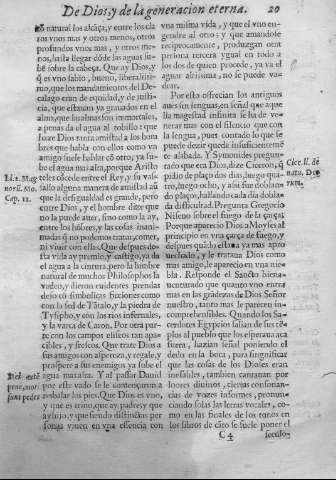 De Dios, y de la generacion eterna. 20
tõ natural los alcãça, y entre los cla
ros vnos mas y otros menos, otros
profundos vnos mas, y otros me-
nos, hasta llegar dõde las aguas su-
bẽ sobre la cabeça. Que ay Dios, y
q̃ es vno sabio, bueno, liberalissi-
mo, que los mandamientos del De-
calago eran de equidad, y de justi-
cia, que estauan ya ganados en el al-
mo, que las almas son immortales,
a penas da el agua al tobillo: que
hõbres que habla con ellos como vn
amigo suele hablar cõ otro, ya su-
be el agua mas alta, porque Aristo
teles cõcede entre el Rey, y su vas-
sallo alguna manera de amistad aũ
que la desigualdad es grande, pero
entre Dios, y el hombre dize que
no la puede auer, sino como la ay,
entre los hõbres, y las cosas inani-
madas q̃ no podemos tratar, comer,
ni viuir con ellas. Que despues des-
ta vida ay premio, y castigo, ya da
el agua a la cintura, pero la lumbre
natural de muchos Philosophos lo
vadeo, y dieron euidentes prendas
desso cõ simbolicas ficciones como
con la sed de Tãtalo, y la piedra de
Tysipho, y con los rios infernales,
y la varca de Caron. Por otra par-
te con los campos elisios tan apaci-
bles, y frescos. Que trate Dios a
sus amigos con aspereza, y regale, y
prospere a sus enemigos ya sube el
agua mas alta. Y al passar Dauid
por este vado se le començaron a
resbalar los pies. Que Dios es vno,
y que es trino, que ay padre, y que
ay hijo, y que siendo distinctas per
sonas viuen en vna essencia con
vna misma vida, y que el vno en-
gendre al otro: y que amandole
reciprocamente, produzgan otra
persona tercera ygual en todo a
los dos de quien procede, ya va el
agua altissima, no se puede va-
dear.
Por esto ofrecian los antiguos
aues sin lenguas, en señal que aque
lla magestad infinita se ha de ve-
nerar mas con el silencio que con
la lengua, pues contado lo que se
puede dezir queda insuficientemẽ
te alabada. Y Symonides pregun-
tado que era Dios, dize Ciceron, q̃
pidio de plaço dos dias, luego qua-
tro, luego ocho, y assi fue doblando
el plaço, hallando cada dia dobla-
da dificultad. Pregunta Gregorio
Niseno sobre el fuego de la çarça:
Porque aparecio Dios a Moyses al
principio en vna çarça de fuego, y
despues quãdo estaua ya mas apro
uechado, y le trataua Dios como
mas amigo, le aparecio en vna nie-
bla. Responde el Sancto bien
auenturado que quanto vno entra
mas en las grãdezas de Dios Señor
nuestro, tanto mas le parecen in-
comprehensibles. Quando los Sa-
cerdotes Egypcios salian de sus tẽ-
plos al pueblo que los esperaua aca
fuera, hazian señal poniendo el
dedo en la boca, para significar
que las cosas de los Dioses eran
inefables, tambien cantauan por
loores diuinos, ciertas consonan-
cias de vozes informes, pronun-
ciando solas las letras vocales, co-
mo en las finales de los tonos en
los libros de cãto se suele poner el
C 4 seculo-
Cap. 11.